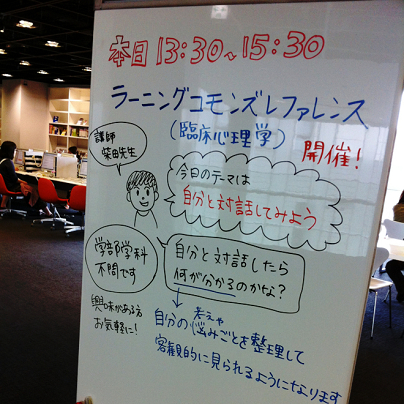 本日 13:30~15:30
ラーニングコモンズレファレンス
(臨床心理学)
開催!
講師
柴田先生
今日のテーマは
自分と対話してみよう
学部学科
不問です
自分と対話したら
何が分かるのかな?
興味がある方
お気軽に!
考えや
自分の悩みごとを整理して
客観的に見られるようになります